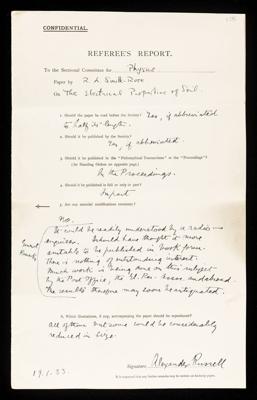 CONFIDENTIAL.
REFEREE'S REPORT.
To the Sectional Committee for Physics
Paper by R. L. Smith-Rose
On The Electrical Properties of Soil.
1. Should the paper be read before the Society? Yes, if abbreviated
to half its length.
2. Should it be published by the Society?
Yes, if abbreviated.
3. Should it be published in the "Philosophical Transactions" or the "Proceedings"?
(See Standing Orders on opposite page.)
In the Proceedings.
4. Should it be published in full or only in part?
In part
5. Are any material modifications necessary?
No.
It could be easily understood by a radio
engineer. Should have thought it more
suitable to be published in book form.
There is nothing of outstanding interest.
Much work is being done on this subject
by the Post Office, the El. Res. Assoc. and abroad.
The results therefore may soon be antiquated.
6. Which illustrations, if any, accompanying the paper should be reproduced?
All of them but some could be considerably
reduced in size.
Signature Alexander Russell
19.1.33.
It is requested that any further remarks may be written on the back page.